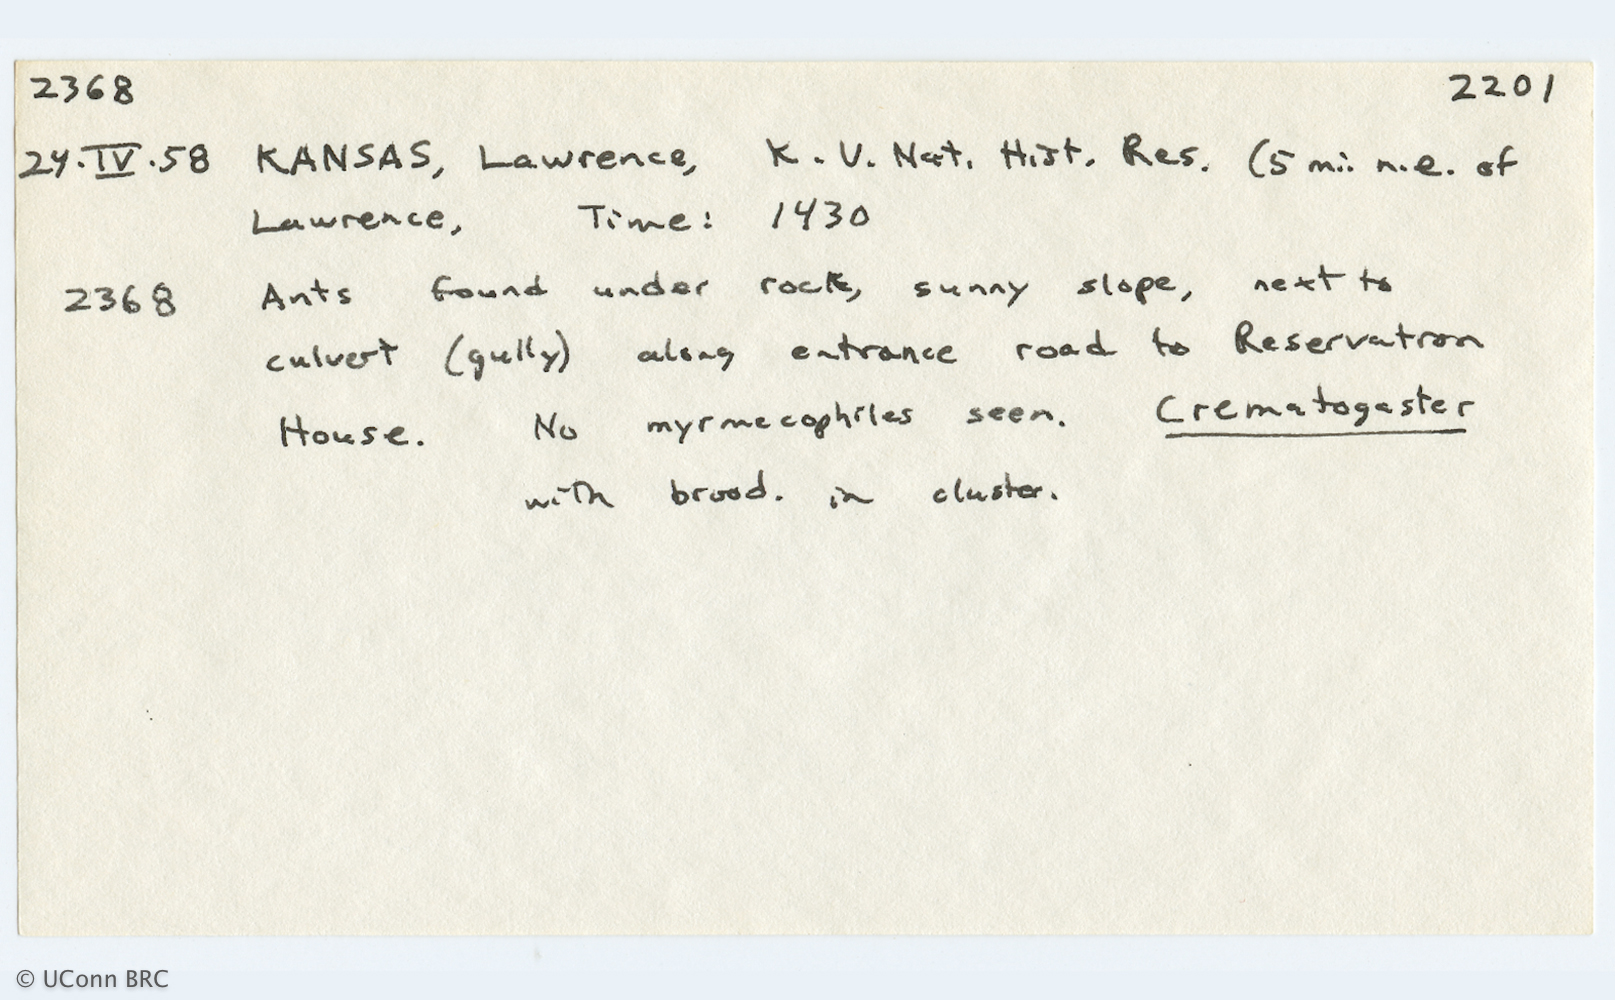 2368 2201
24.IV.58 KANSAS, Lawrence, K.U. Nat. Hist. Res. (5 mi. n.e. of
Lawrence, Time: 1430
2368 Ants found under rock, sunny slope, next to
culvert (gully) along entrance road to Reservation
House. No myrmecophiles seen. Crematogaster
with brood. in cluster.
© UConn BRC